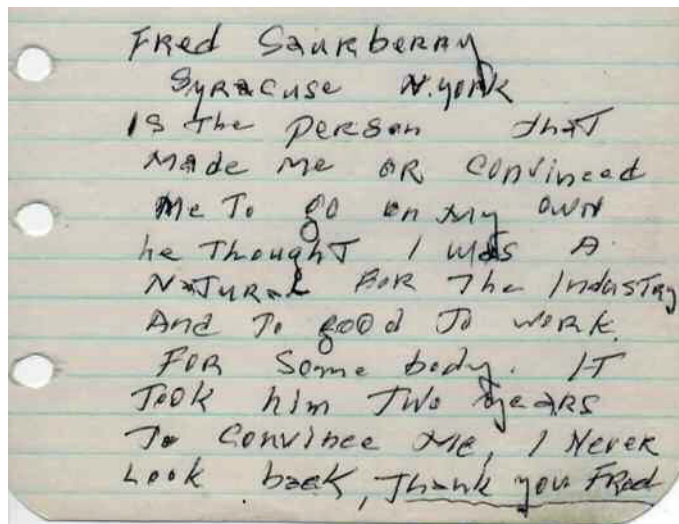 Fred Saurberry
Syracuse N.york
is the person that
made me or convinced
me to go on my own
he thought I was a
natural for the industry
and to good to work
for some body. it
took him two years
to convince me, I never
look back, thank you Fred